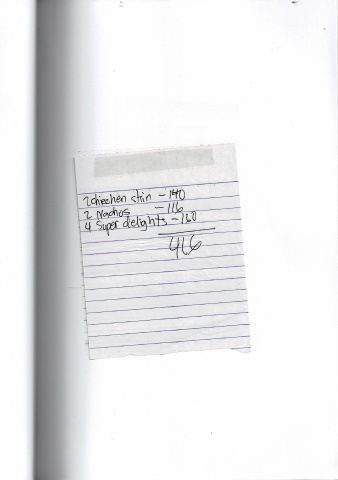 2 chicchen skin - 140
2 Nachos - 116
4 Super delights - 160
416